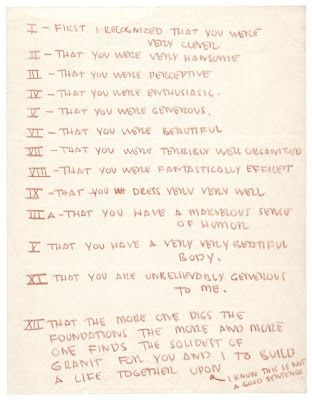 I - FIRST I RECOGNIZED THAT YOU WERE
VERY CLEVER
II - THAT YOU WERE VERY HANSOME
III - THAT YOU WERE PERCEPTIVE
IV - THAT YOU WERE ENTHUSIASTIC.
V - THAT YOU WERE GENEROUS.
VI - THAT YOU WERE BEAUTIFUL
VII - THAT YOU WERE TERRIBLY WELL ORGANIZED
VIII - THAT YOU WERE FANTASTICALLY EFFICIENT
IX - THAT YOU DRESS VERY VERY WELL
IIIA - THAT YOU HAVE A MARVELOUS SENSE
OF HUMOR
X THAT YOU HAVE A VERY VERY BEAUTIFUL
BODY.
XI THAT YOU ARE UNBELIEVABLY GENEROUS
TO ME.
XII THAT THE MORE ONE DIGS THE
FOUNDATIONS THE MORE AND MORE
ONE FINDS THE SOLIDEST OF
GRANIT FOR YOU AND I TO BUILD
A LIFE TOGETHER UPON
I KNOW THIS IS NOT
A GOOD SENTENCE